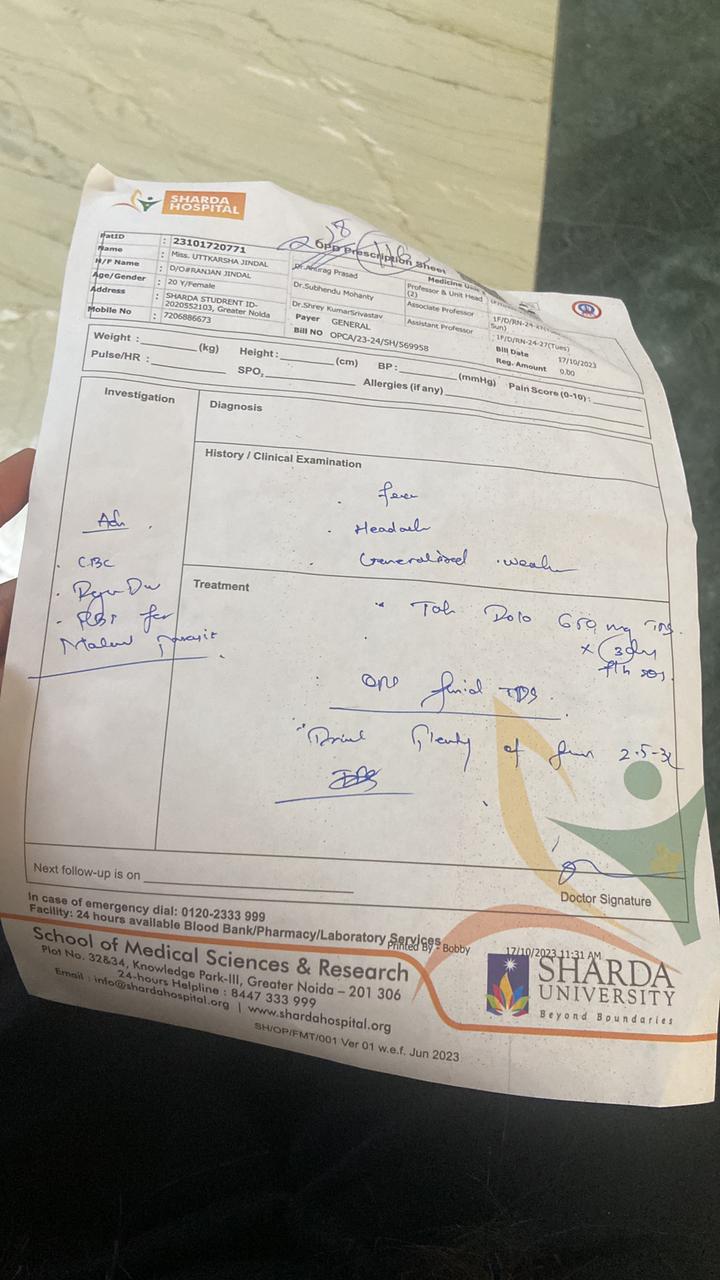 SHARDA
HOSPITAL
Opp Prescription Sheet
PatID : 23101720771
Name : Miss. UTTKARSHA JINDAL
H/F Name : D/O#RANJAN JINDAL
Age/Gender : 20 Y/Female
Address : SHARDA STUDRENT ID-
2020552103, Greater Noida
Mobile No : 7206886673
Dr.Anurag Prasad Professor & Unit Head
(2)
Dr.Subhendu Mohanty Associate Professor
Dr.Shrey KumarSrivastav Assistant Professor
Medicine
Sun)
1F/D/RN-24-27(Tues)
Payer GENERAL
Bill NO OPCA/23-24/SH/569958
Bill Date 17/10/2023
Reg. Amount 0.00
Weight : (kg) Height: (cm) BP: (mmHg) Pain Score (0-10):
Pulse/HR : SPO2 Allergies (if any)
Investigation
Adv
CBC
for
Diagnosis
History / Clinical Examination
Fever
Headach
Generalised weak
Treatment
Tab Dolo 650 mg TDS
x 3 day
fth sos
ORS fluid TDS
Drink Plenty of 2.5-3L
Next follow-up is on
Doctor Signature
In case of emergency dial: 0120-2333 999
Facility: 24 hours available Blood Bank/Pharmacy/Laboratory Services
Printed By - Bobby 17/10/2023 11:31 AM
School of Medical Sciences & Research
Plot No. 32&34, Knowledge Park-III, Greater Noida – 201 306
24-hours Helpline : 8447 333 999
Email : info@shardahospital.org | www.shardahospital.org
SH/OP/FMT/001 Ver 01 w.e.f. Jun 2023
SHARDA
UNIVERSITY
Beyond Boundaries